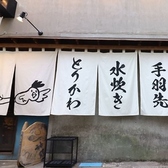 手羽先
水炊き
とりかわ